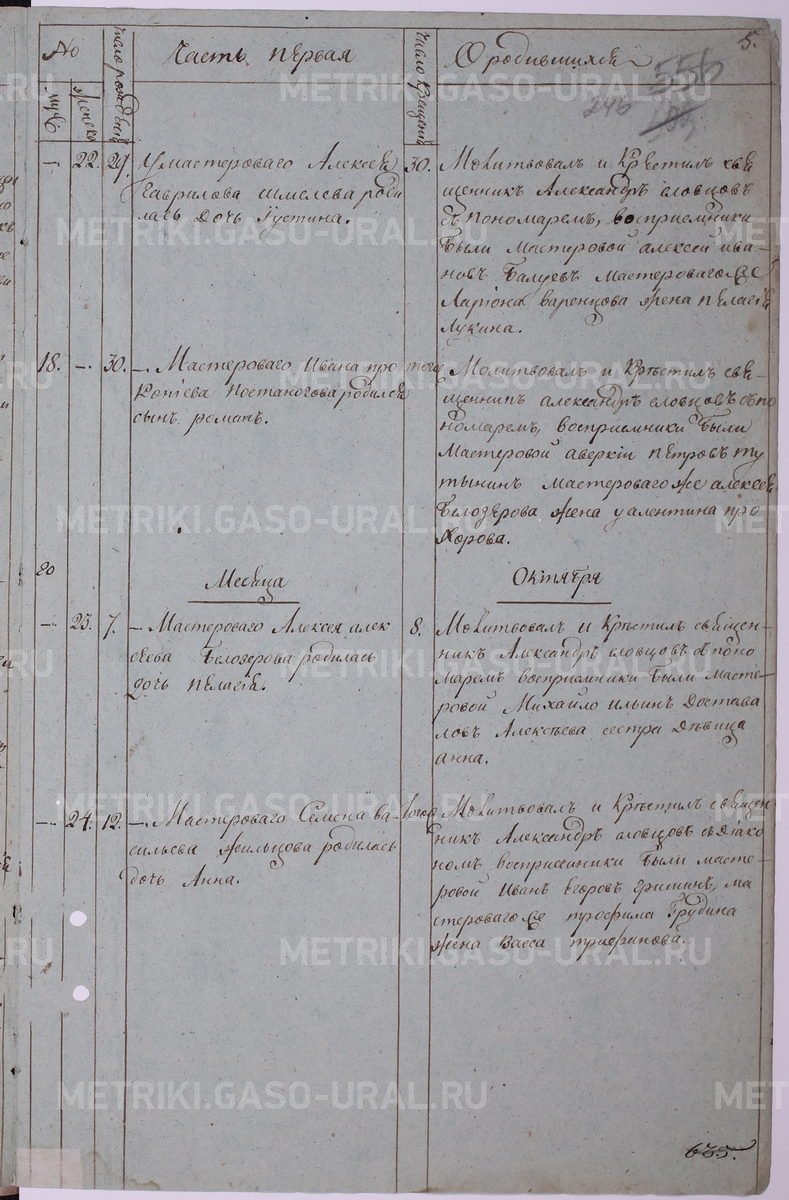 5.
556
246
No
Число рождения
Часть первая
Число крещения
О родившихся
муж
женска
– 22. 29. У мастероваго Алексея
Гаврилова Шмелева роди
лась дочь Густина.
30. Молитвовалъ и Крѣстилъ свя
щенникъ Александръ словцовъ
съ пономаремъ, восприемники
были мастеровой алексеи ива–
новъ Балуевъ мастероваго же
Лариона варенцова жена пелагія
Лукина.
18. – 30. –. Мастероваго Ивана про
Копіева Постаногова родился
сынъ романъ.
того
Молитвовалъ и Крѣстилъ свя–
щенникъ александръ словцовъ съ по
номаремъ, восприемники были
Мастеровой аверкіи петровъ ту
тынинъ мастероваго же алексея
Белозерова жена уалентина про
хорова.
20
Месяца
Октября
– 23. 7. –. Мастероваго Алексея алек
сѣева Белозерова родилась
дочь пелагія.
8. Молитвовалъ и Крѣстилъ священ–
никъ Александръ словцовъ съ поно
маремъ восприемники были масте–
ровой Михайло ильинъ Достава
ловъ Алексѣева сестра Дѣвица
анна.
– 24. 12. –. Мастероваго Семена ва
сильева Жильцова родилась
дочь Анна.
Молитвовалъ и Крѣстилъ священ
никъ Александръ словцовъ съ діако
номъ восприемники были масте–
ровой Иванъ Егоровъ ма
стероваго же трофима Грудина
жена Васса трифанова.
635.
METRIKI.GASO-URAL.RU